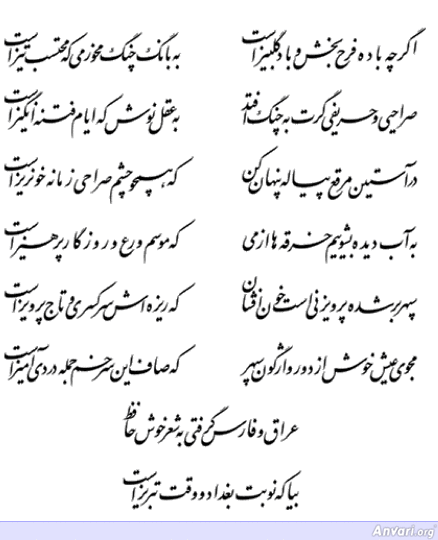 اگرچه باده فرح بخش و باد گلبیز است به بانگ چنگ مخور می که محتسب تیز است
صراحی و حریفی گرت به چنگ افتد به عقل نوش که ایام فتنه انگیز است
در آستین مرقع پیاله پنهان کن که همچو چشم صراحی زمانه خونریز است
به آب دیده بشوییم خرقه ها از می که موسم ورع و روزگار پرهیز است
سپهر بر شده پرویزنی است خون افشان که ریزه اش سر کسری و تاج پرویز است
مجوی عیش خوش از دور واژگون سپهر که صاف این سر خم جمله دردی آمیز است
عراق و فارس گرفتی به شعر خوش حافظ
بیا که نوبت بغداد و وقت تبریز است
Anvari.org